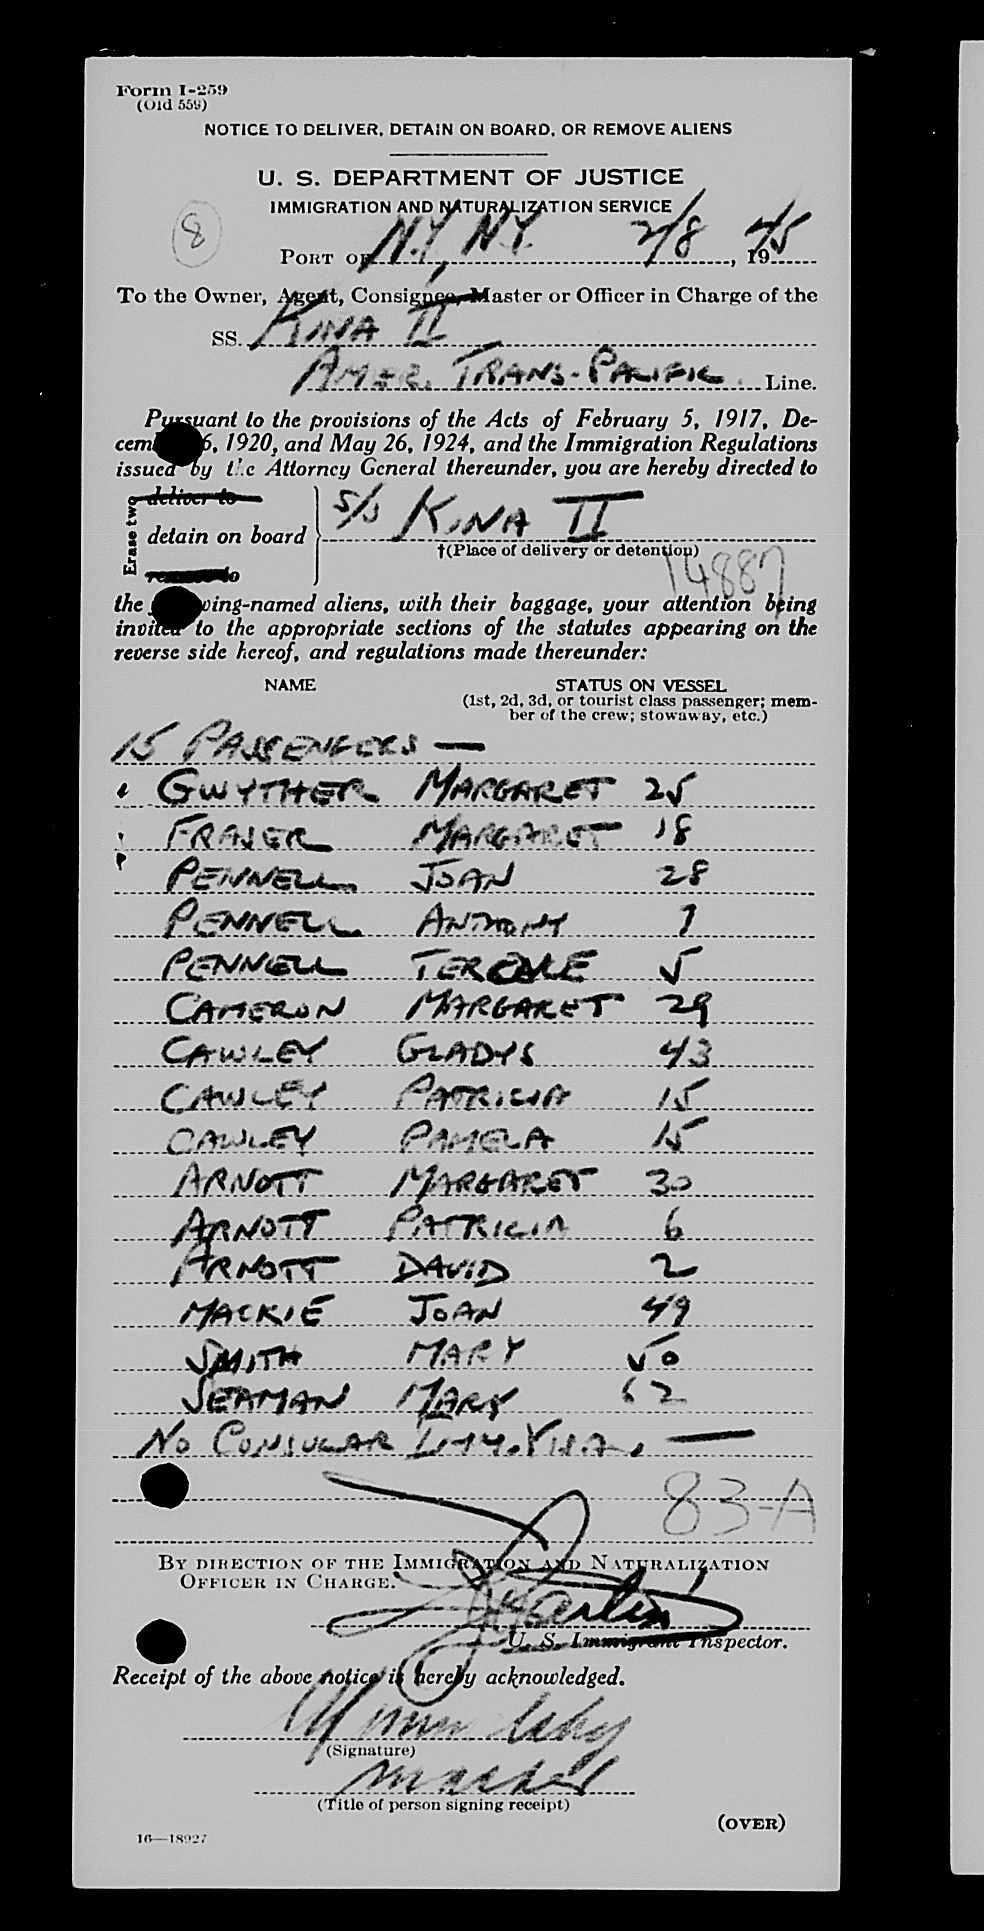 Form I-259
(Old 559)
NOTICE TO DELIVER, DETAIN ON BOARD, OR REMOVE ALIENS
U. S. DEPARTMENT OF JUSTICE
IMMIGRATION AND NATURALIZATION SERVICE
8
PORT OF N.Y., N.Y. 2/8, 1945
To the Owner, Agent, Consignee, Master or Officer in Charge of the
SS. KINA II
AMER. TRANS-PACIFIC Line.
Pursuant to the provisions of the Acts of February 5, 1917, De-
cem 6, 1920, and May 26, 1924, and the Immigration Regulations
issued by the Attorney General thereunder, you are hereby directed to
Erase two
deliver to
detain on board S/S KINA II
†(Place of delivery or detention)
remove to
14887
the wing-named aliens, with their baggage, your attention being
invited to the appropriate sections of the statutes appearing on the
reverse side hereof, and regulations made thereunder:
NAME STATUS ON VESSEL
(1st, 2d, 3d, or tourist class passenger; mem-
ber of the crew; stowaway, etc.)
15 PASSENGERS —
GWYTHER MARGARET 25
FRASER MARGARET 18
PENNELL JOAN 28
PENNELL ANTHONY 7
PENNELL 5
CAMERON MARGARET 29
CAWLEY GLADYS 43
CAWLEY PATRICIA 15
CAWLEY PAMELA 15
ARNOTT MARGARET 30
ARNOTT PATRICIA 6
ARNOTT DAVID 2
MACKIE JOAN 49
SMITH MARY 50
SEAMAN MARY 62
NO CONSULAR IMM. VISA. —
83-A
BY DIRECTION OF THE IMMIGRATION AND NATURALIZATION
OFFICER IN CHARGE.
U. S. Immigrant Inspector.
Receipt of the above notice is hereby acknowledged.
(Signature)
(Title of person signing receipt)
(OVER)
16—18927